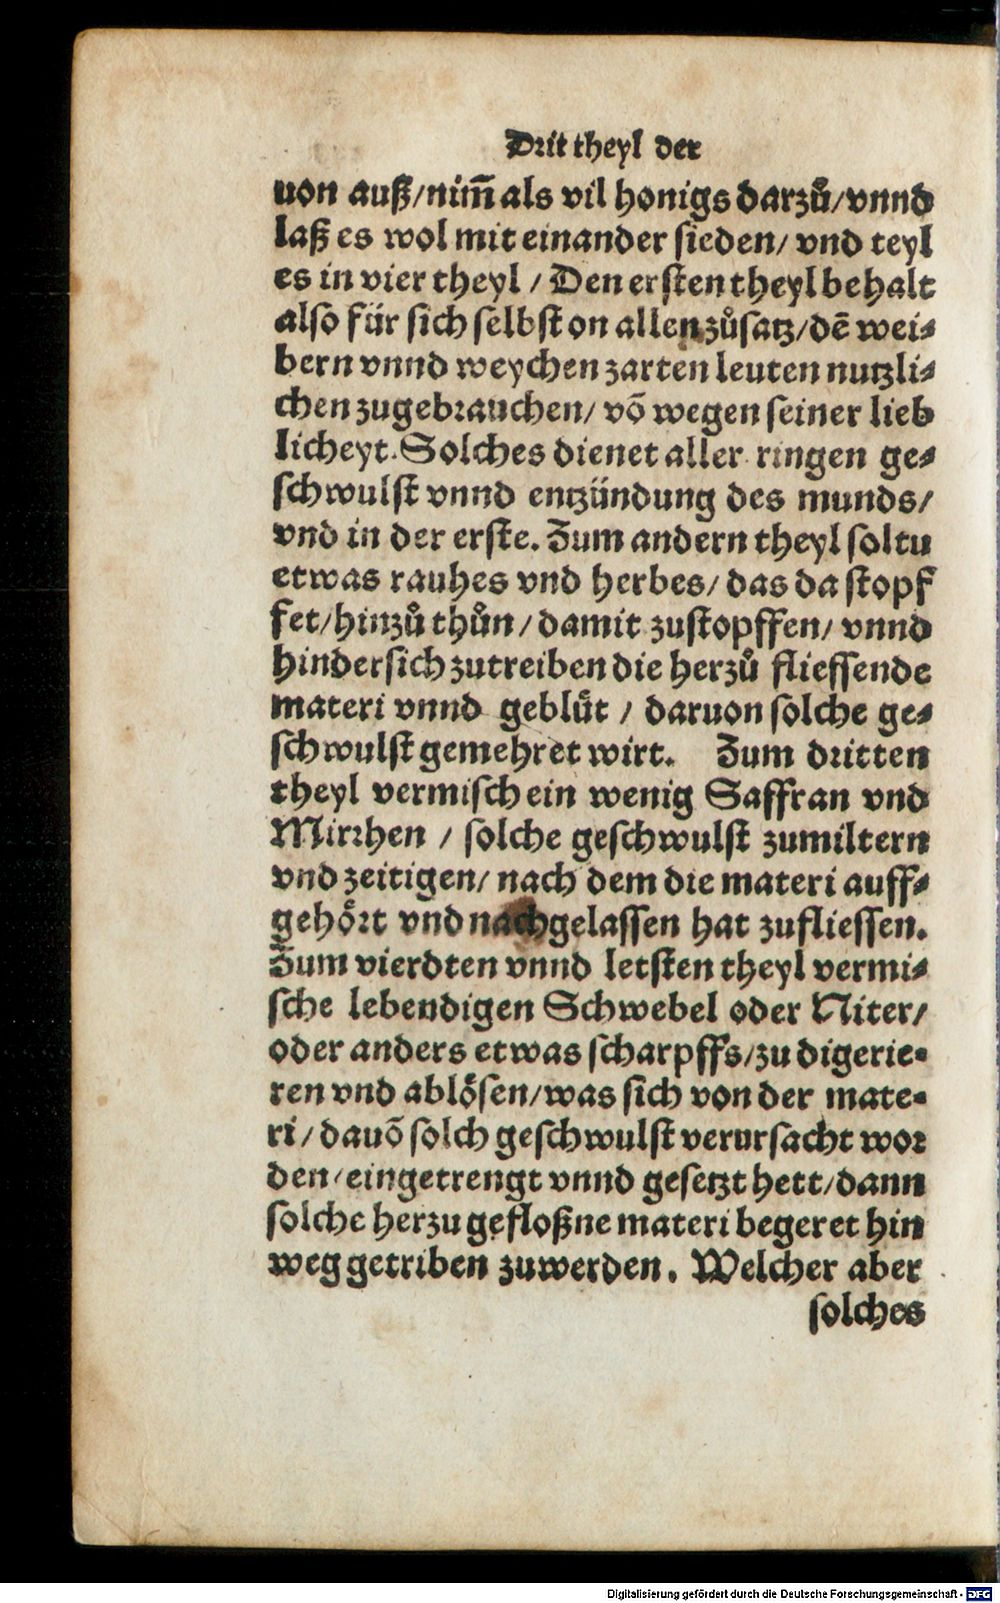 Drit theyl der
uon auß/nim̄ als vil honigs darzů/vnnd
laß es wol mit einander sieden/ vnd teyl
es in vier theyl / Den ersten theyl behalt
also für sich selbst on allen zůsatz/dē wei⸗
bern vnnd weychen zarten leuten nutzli⸗
chen zugebrauchen/ vō wegen seiner lieb
licheyt. Solches dienet aller ringen ge⸗
schwulst vnnd entzündung des munds/
vnd in der erste. Zum andern theyl soltu
etwas rauhes vnd herbes/ das da stopf
fet/hinzů thůn/damit zustopffen/ vnnd
hindersich zutreiben die herzů fliessende
materi vnnd geblůt / daruon solche ge⸗
schwulst gemehret wirt. Zum dritten
theyl vermisch ein wenig Saffran vnd
Mirrhen / solche geschwulst zumiltern
vnd zeitigen/ nach dem die materi auff⸗
gehőrt vnd nachgelassen hat zufliessen.
Zum vierdten vnnd letsten theyl vermi⸗
sche lebendigen Schwebel oder Niter/
oder anders etwas scharpffs/zu digerie⸗
ren vnd ablösen/was sich von der mate⸗
ri/dauō solch geschwulst verursacht wor
den/eingetrengt vnnd gesetzt hett/dann
solche herzu gefloßne materi begeret hin
weg getriben zuwerden. Welcher aber
solches
Digitalisierung gefördert durch die Deutsche Forschungsgemeinschaft - DFG